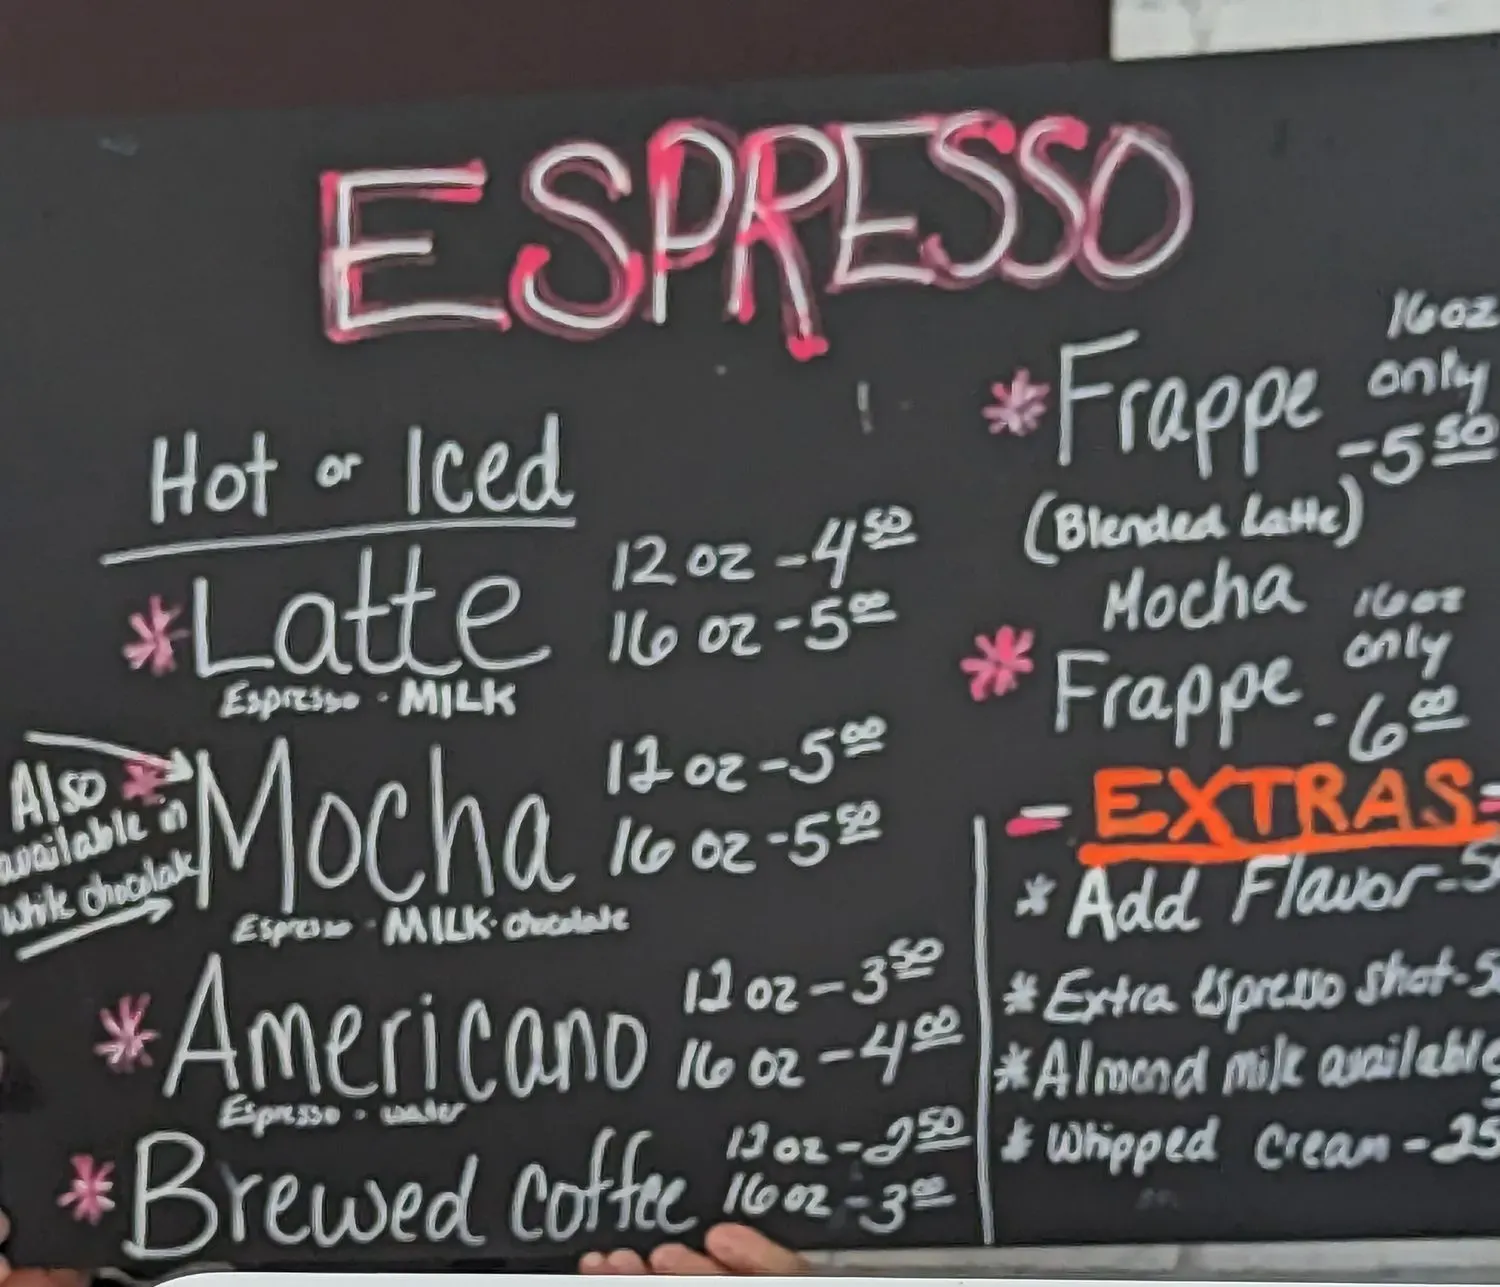 ESPRESSO
Hot or Iced
*Latte 12 oz - 4 50
16 oz - 5 00
Espresso · MILK
Also
available in
white chocolate
*Mocha 12 oz - 5 00
16 oz - 5 50
Espresso · MILK · chocolate
*Americano 12 oz - 3 50
16 oz - 4 00
Espresso - water
*Brewed coffee 12 oz - 2 50
16 oz - 3 00
*Frappe 16 oz
only
- 5 50
(Blended Latte)
Mocha
*Frappe 16 oz
only
- 6 00
- EXTRAS -
* Add Flavor - 5
* Extra espresso shot - 5
* Almond milk available
* Whipped cream - 25